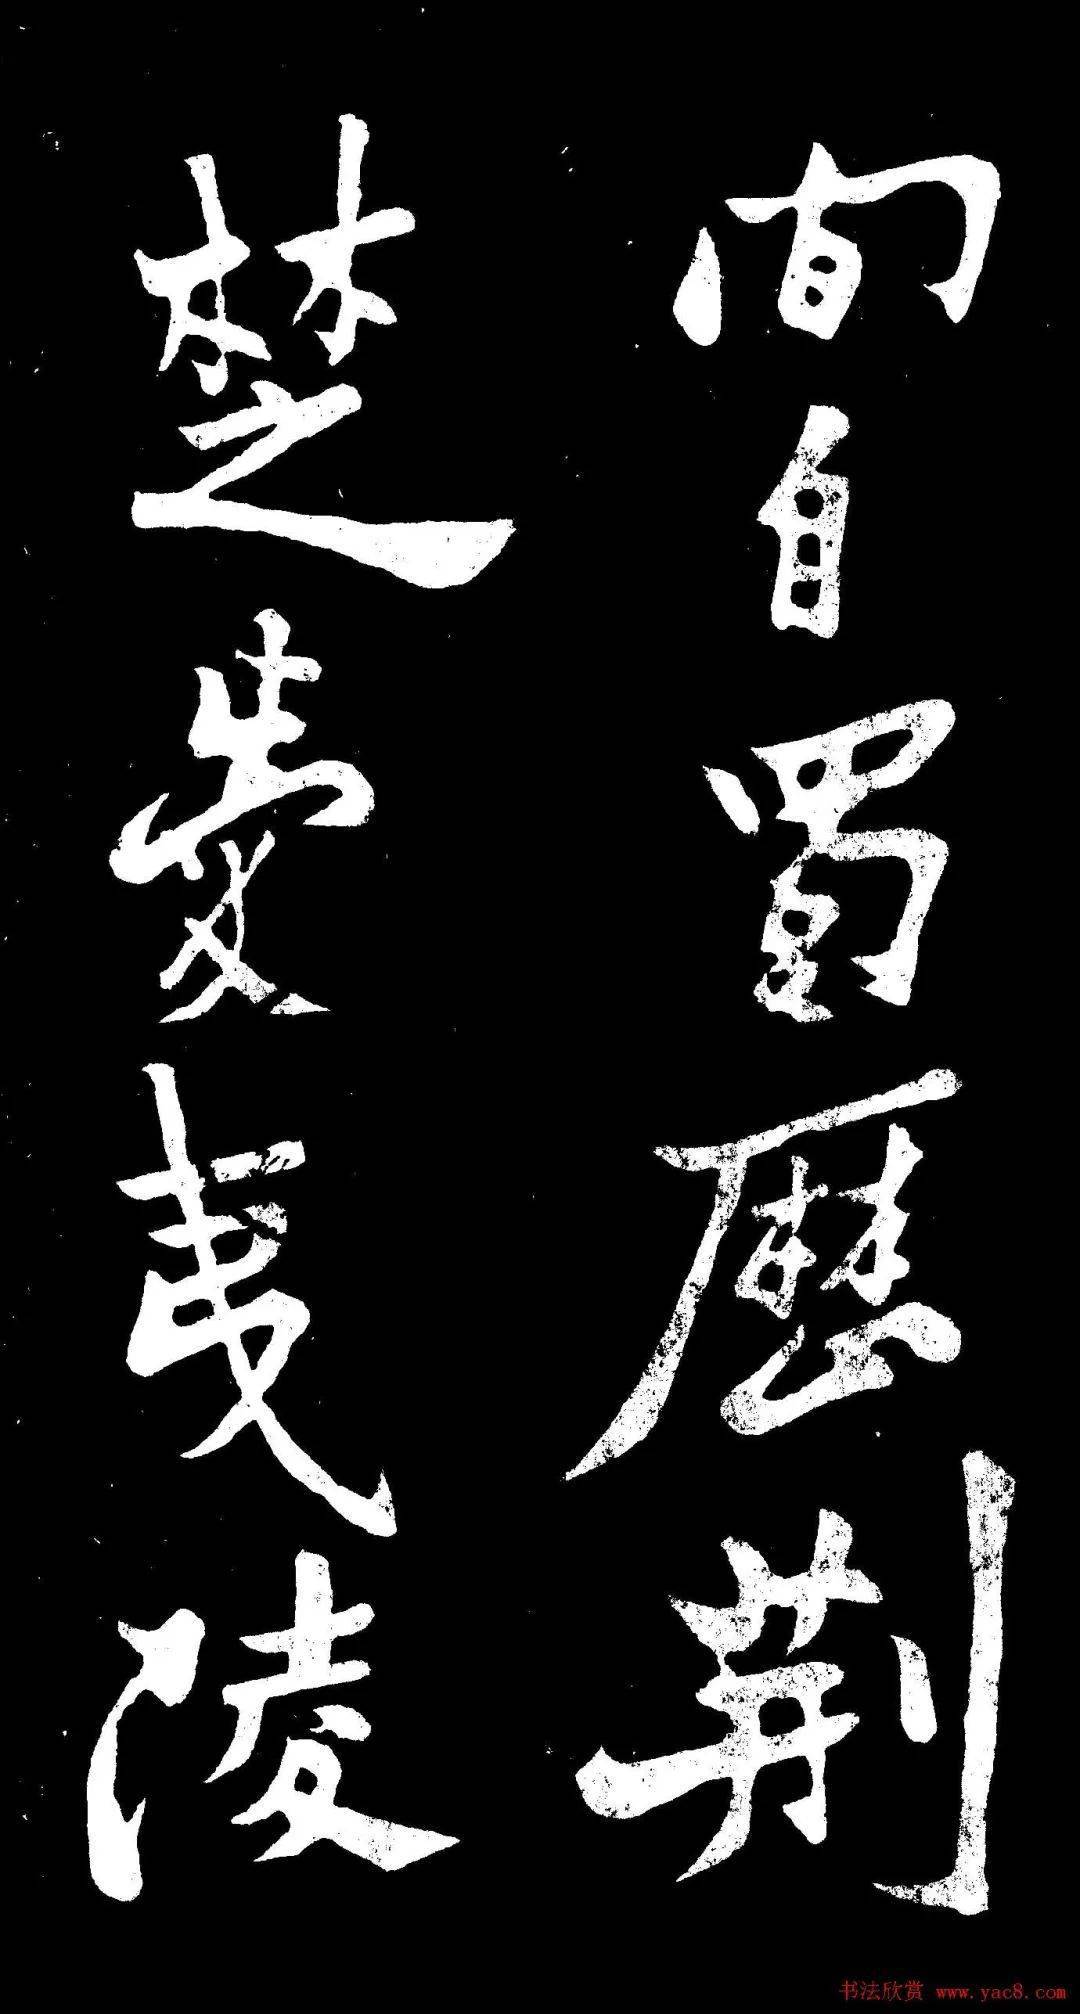 間自蜀歷荆
楚爱夷陵
书法欣赏 www.yac8.com